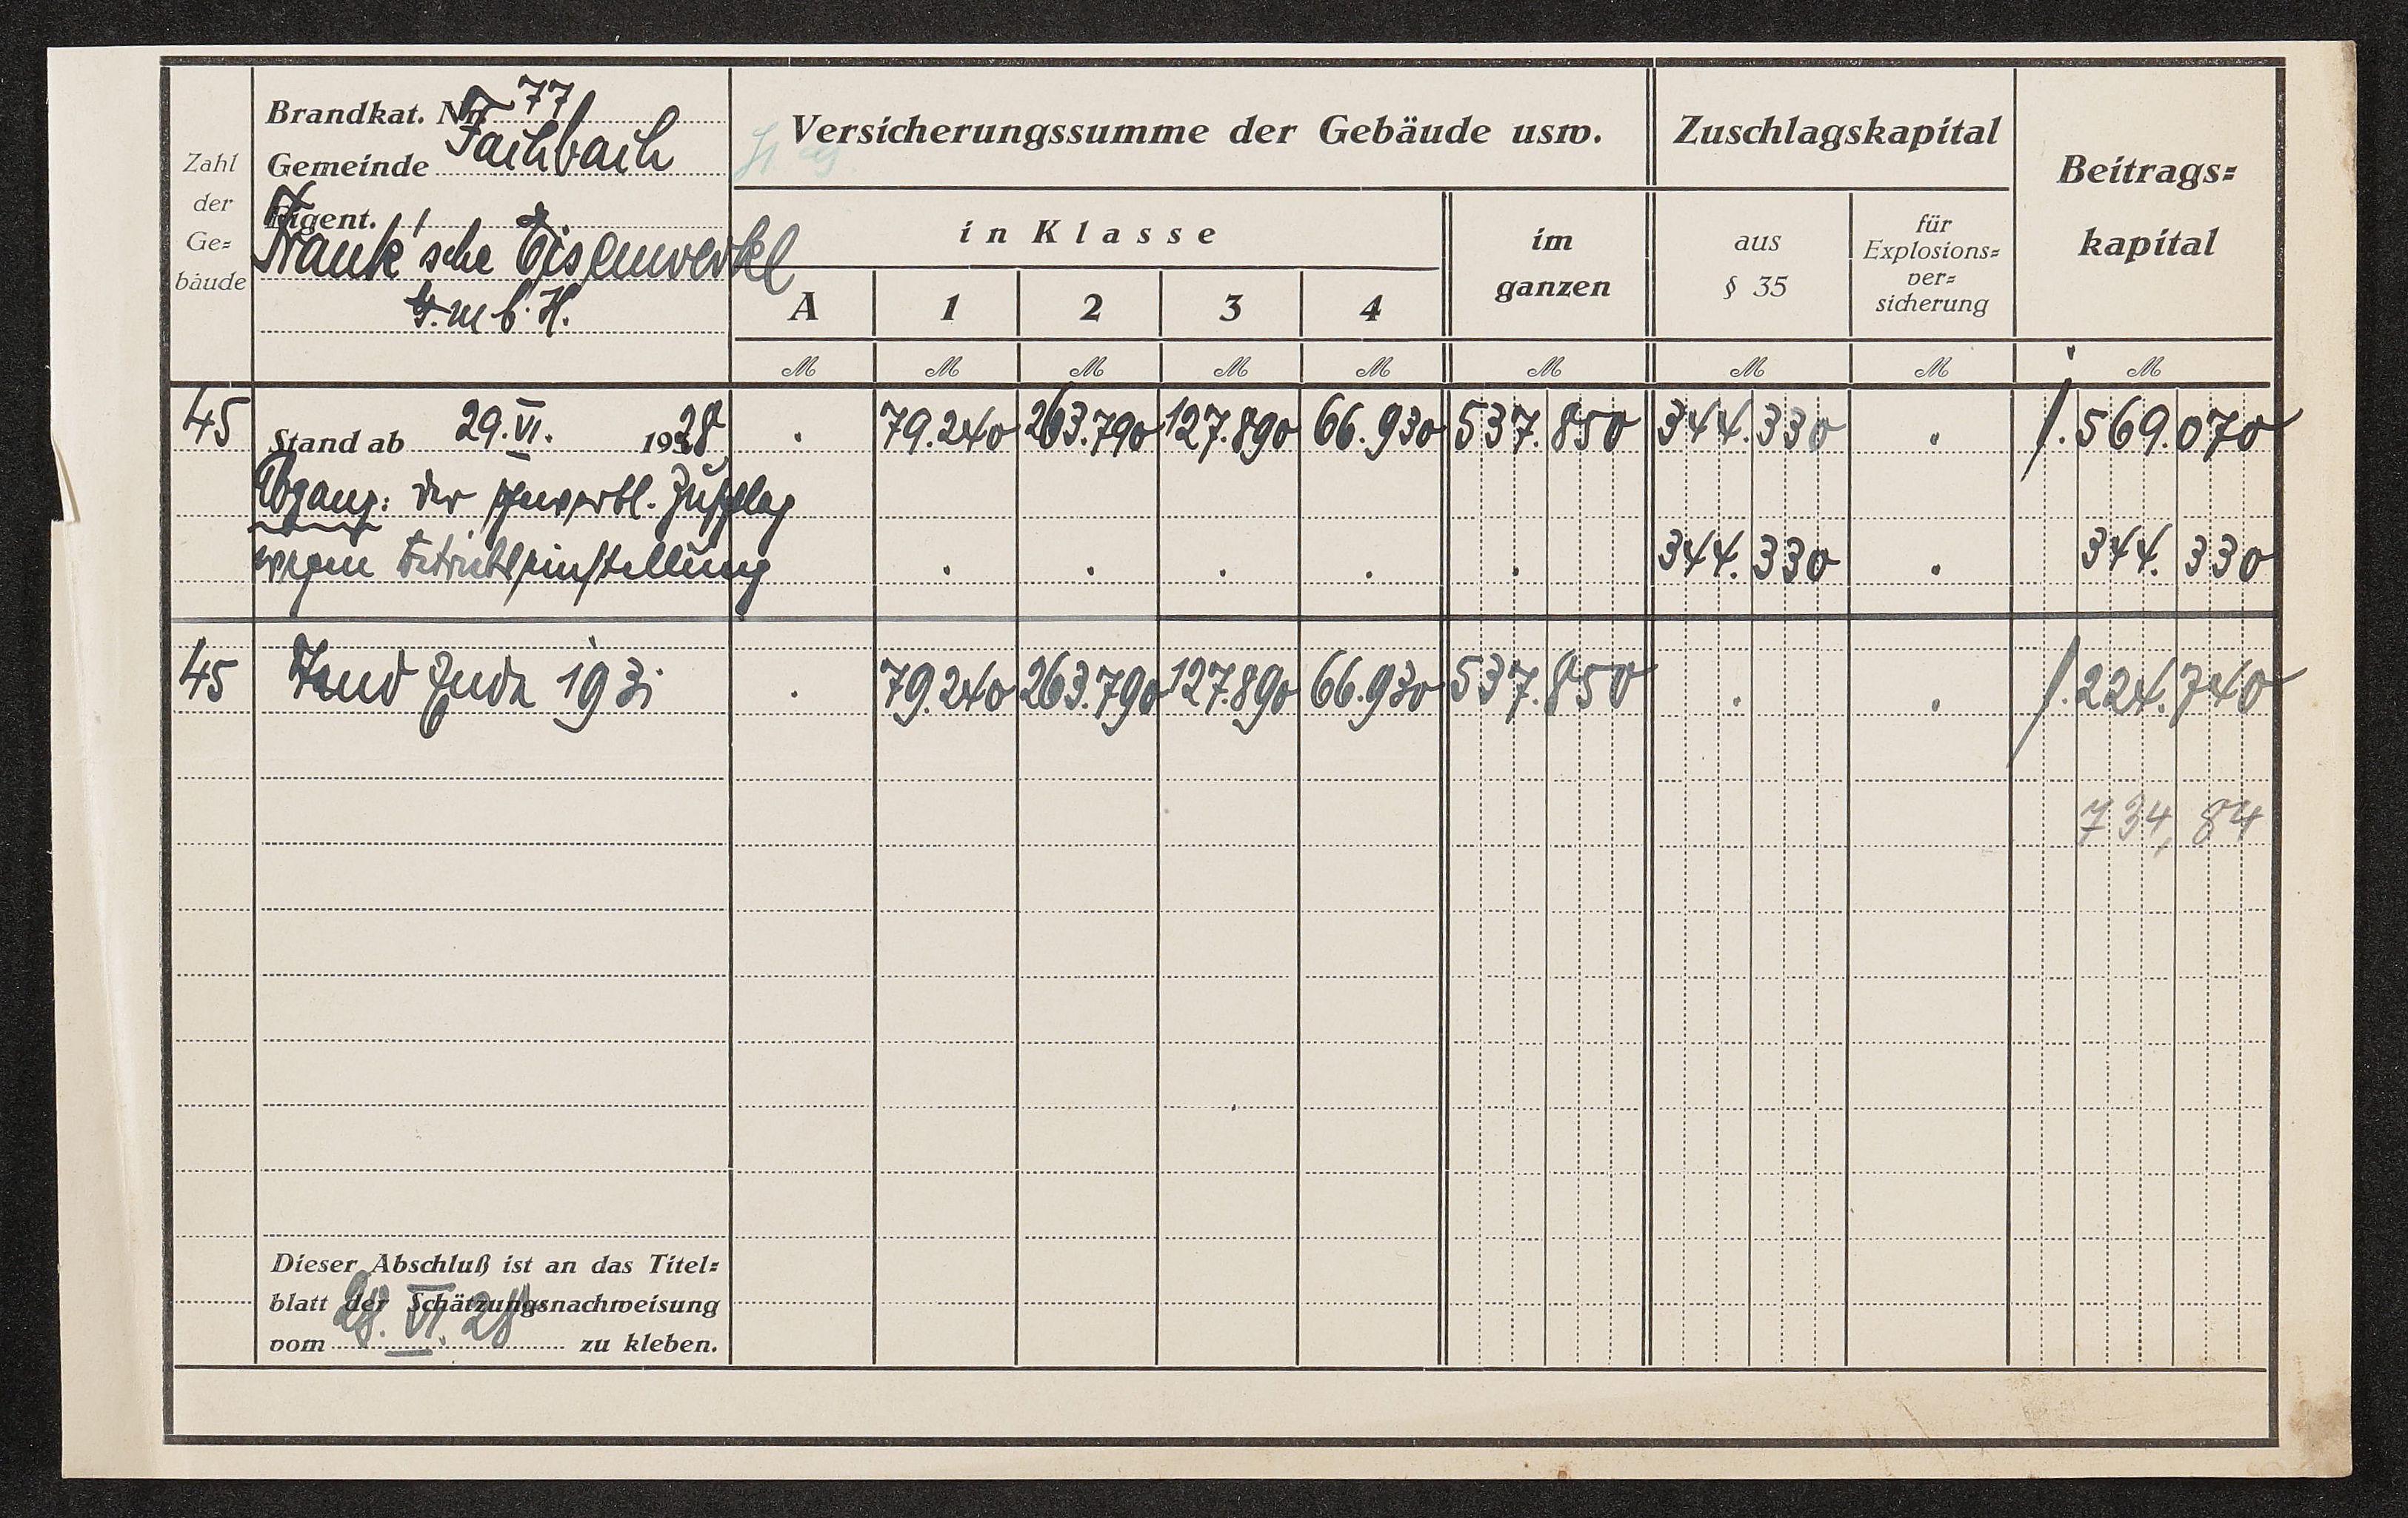 Zahl der Ge= bäude
Brandkat. Nr. 77
Gemeinde Fachbach
Eigent.
Frank'sche Eisenwerke
G.m.b.H.
Versicherungssumme der Gebäude usw.
in Klasse
A 1 2 3 4
im ganzen
Zuschlagskapital
aus § 35
für Explosions= ver= sicherung
Beitrags= kapital
M M M M M M M M M
45 Stand ab 29.VI. 1928 . 79.240 263.790 127.890 66.930 537.850 344.330 . 1.569.070
Abgang: der gewerbl. Zuschlag
wegen Betriebseinstellung . . . . . 344.330 . 344.330
45 Stand Ende 1931 . 79.240 263.790 127.890 66.930 537.850 . . 1.224.740
734,84
Dieser Abschluß ist an das Titel=
blatt der Schätzungsnachweisung
vom 28.VI.28 zu kleben.